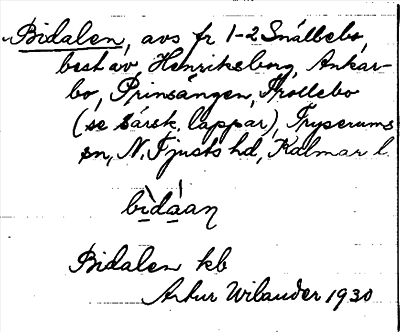 Bidalen, avs fr 1-2 Snällebo,
best av Henriksborg, Ankar-
bo, Prinsängen, Trollebo
(se särsk. lappar), Tryserums
sn, N. Tjusts hd, Kalmar l.
bìdáan
Bidalen kb
Artur Wilander 1930